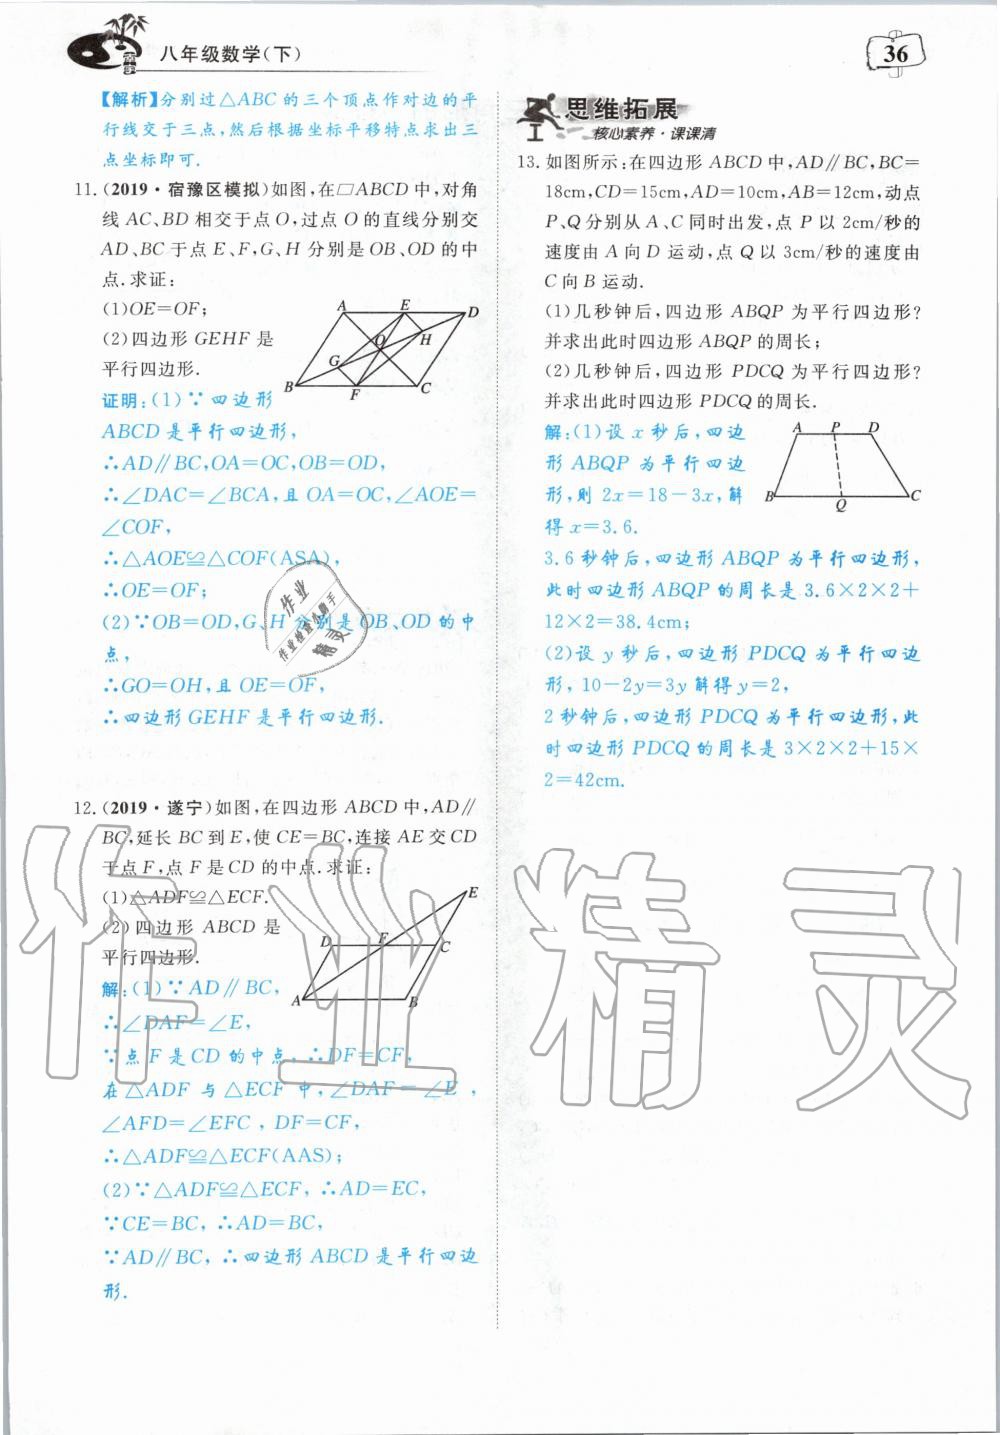 八年级数学(下)
36
【解析】分别过△ABC的三个顶点作对边的平
行线交于三点,然后根据坐标平移特点求出三
点坐标即可.
11.(2019·宿豫区模拟)如图,在□ABCD中,对角
线AC、BD相交于点O,过点O的直线分别交
AD、BC于点E、F,G、H分别是OB、OD的中
点.求证:
(1)OE=OF;
(2)四边形GEHF是
平行四边形.
A E D
O H
G
B F C
证明:(1)∵四边形
ABCD是平行四边形,
∴AD∥BC,OA=OC,OB=OD,
∴∠DAC=∠BCA,且OA=OC,∠AOE=
∠COF,
∴△AOE≌△COF(ASA),
∴OE=OF;
(2)∵OB=OD,G、H分别是OB、OD的中
点,
∴GO=OH,且OE=OF,
∴四边形GEHF是平行四边形.
12.(2019·遂宁)如图,在四边形ABCD中,AD∥
BC,延长BC到E,使CE=BC,连接AE交CD
于点F,点F是CD的中点.求证:
(1)△ADF≌△ECF.
(2)四边形ABCD是
平行四边形.
E
D F C
A B
解:(1)∵AD∥BC,
∴∠DAF=∠E,
∵点F是CD的中点,∴DF=CF,
在△ADF与△ECF中,∠DAF=∠E,
∠AFD=∠EFC,DF=CF,
∴△ADF≌△ECF(AAS);
(2)∵△ADF≌△ECF,∴AD=EC,
∵CE=BC,∴AD=BC,
∵AD∥BC,∴四边形ABCD是平行四边
形.
思维拓展
核心素养·课课清
13.如图所示:在四边形ABCD中,AD∥BC,BC=
18cm,CD=15cm,AD=10cm,AB=12cm,动点
P、Q分别从A、C同时出发,点P以2cm/秒的
速度由A向D运动,点Q以3cm/秒的速度由
C向B运动.
(1)几秒钟后,四边形ABQP为平行四边形?
并求出此时四边形ABQP的周长;
(2)几秒钟后,四边形PDCQ为平行四边形?
并求出此时四边形PDCQ的周长.
A P D
B Q C
解:(1)设x秒后,四边
形ABQP为平行四边
形,则2x=18-3x,解
得x=3.6.
3.6秒钟后,四边形ABQP为平行四边形,
此时四边形ABQP的周长是3.6×2×2+
12×2=38.4cm;
(2)设y秒后,四边形PDCQ为平行四边
形,10-2y=3y解得y=2,
2秒钟后,四边形PDCQ为平行四边形,此
时四边形PDCQ的周长是3×2×2+15×
2=42cm.
作业
作业检查小助手
精灵
作业精灵